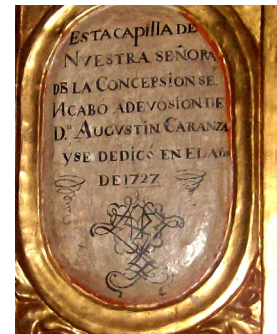 ESTA CAPILLA DE
NVESTRA SEÑORA
DE LA CONCEPSION SE
ИCABO A DEVOSIÓN DE
D.ⁿ AUGVSTIN CARANZA
Y SE DEDICÓ EN EL Año
DE 1727